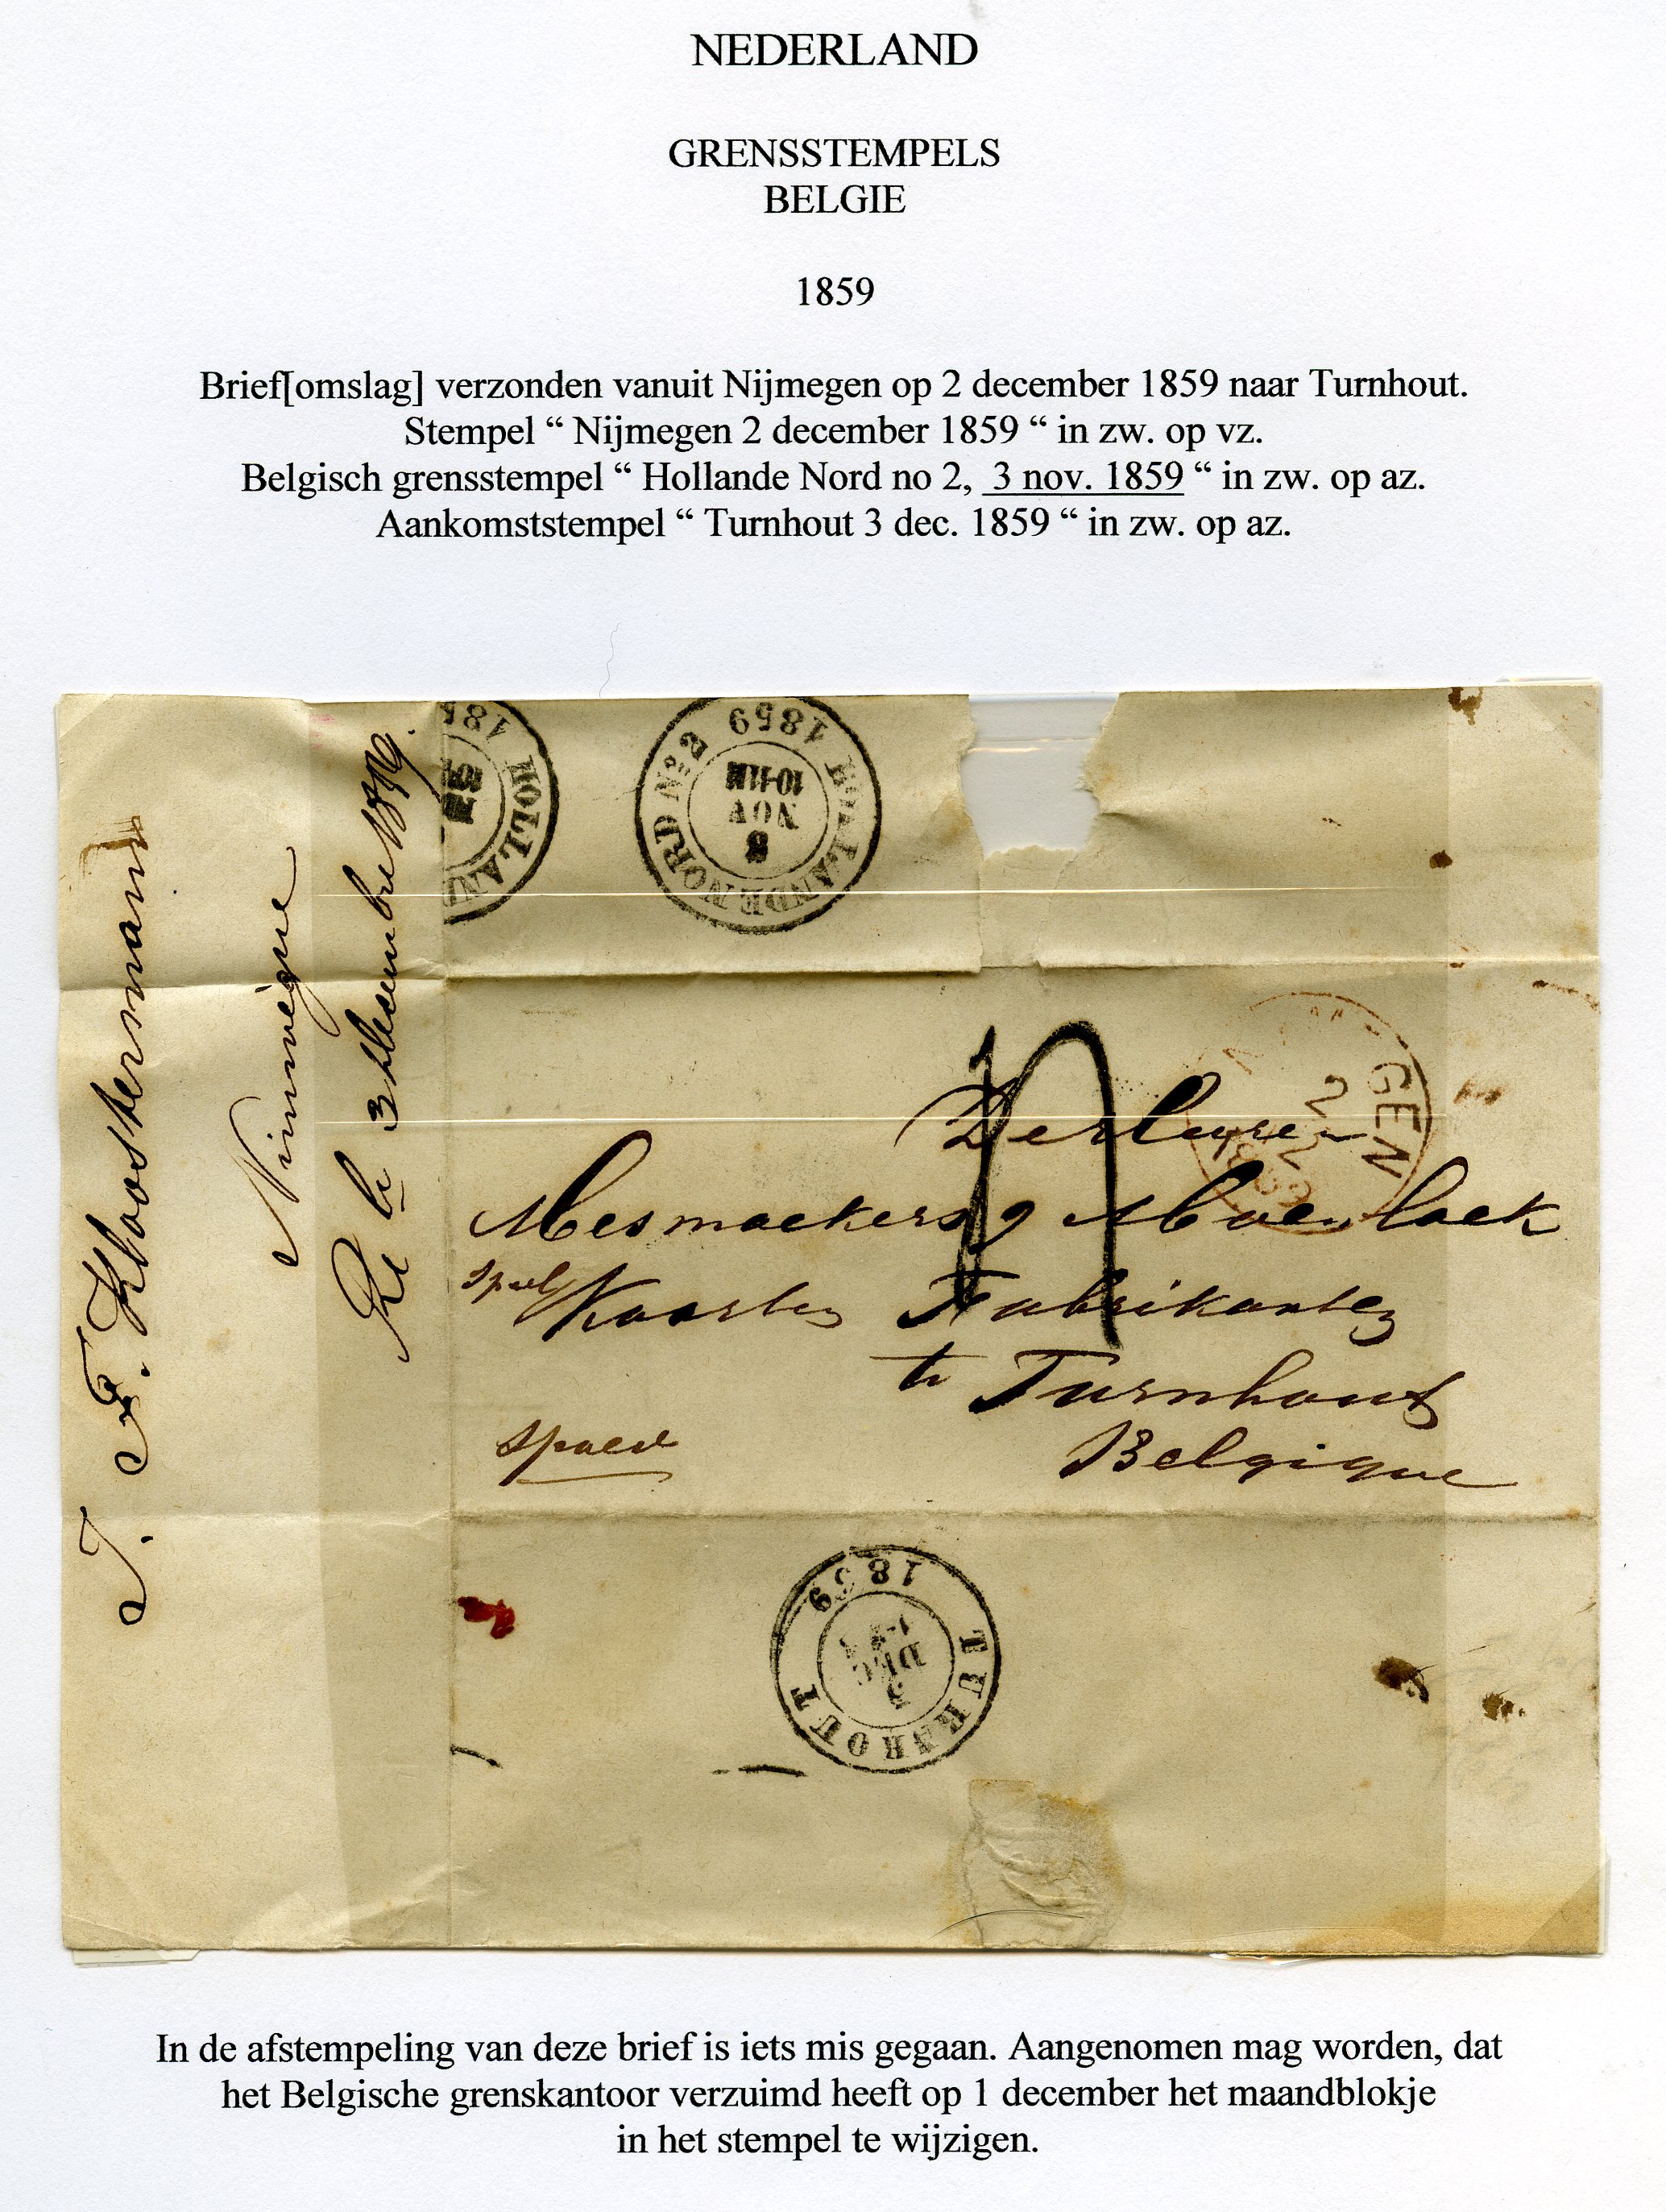 NEDERLAND
GRENSSTEMPELS
BELGIE
1859
Brief[omslag] verzonden vanuit Nijmegen op 2 december 1859 naar Turnhout.
Stempel “ Nijmegen 2 december 1859 “ in zw. op vz.
Belgisch grensstempel “ Hollande Nord no 2, 3 nov. 1859 “ in zw. op az.
Aankomststempel “ Turnhout 3 dec. 1859 “ in zw. op az.
J. F. Kloostermann
Nimmègue
3 Décembre
HOLLAN
185
HOLLANDE NORD No. 2
1859
10-11M
NOV
3
GEN
2
Mesmaekers &
Speel Kaarten Fabrikanten
te Turnhout
Belgique
spoed
TURNHOUT
1859
DEC
3
In de afstempeling van deze brief is iets mis gegaan. Aangenomen mag worden, dat
het Belgische grenskantoor verzuimd heeft op 1 december het maandblokje
in het stempel te wijzigen.